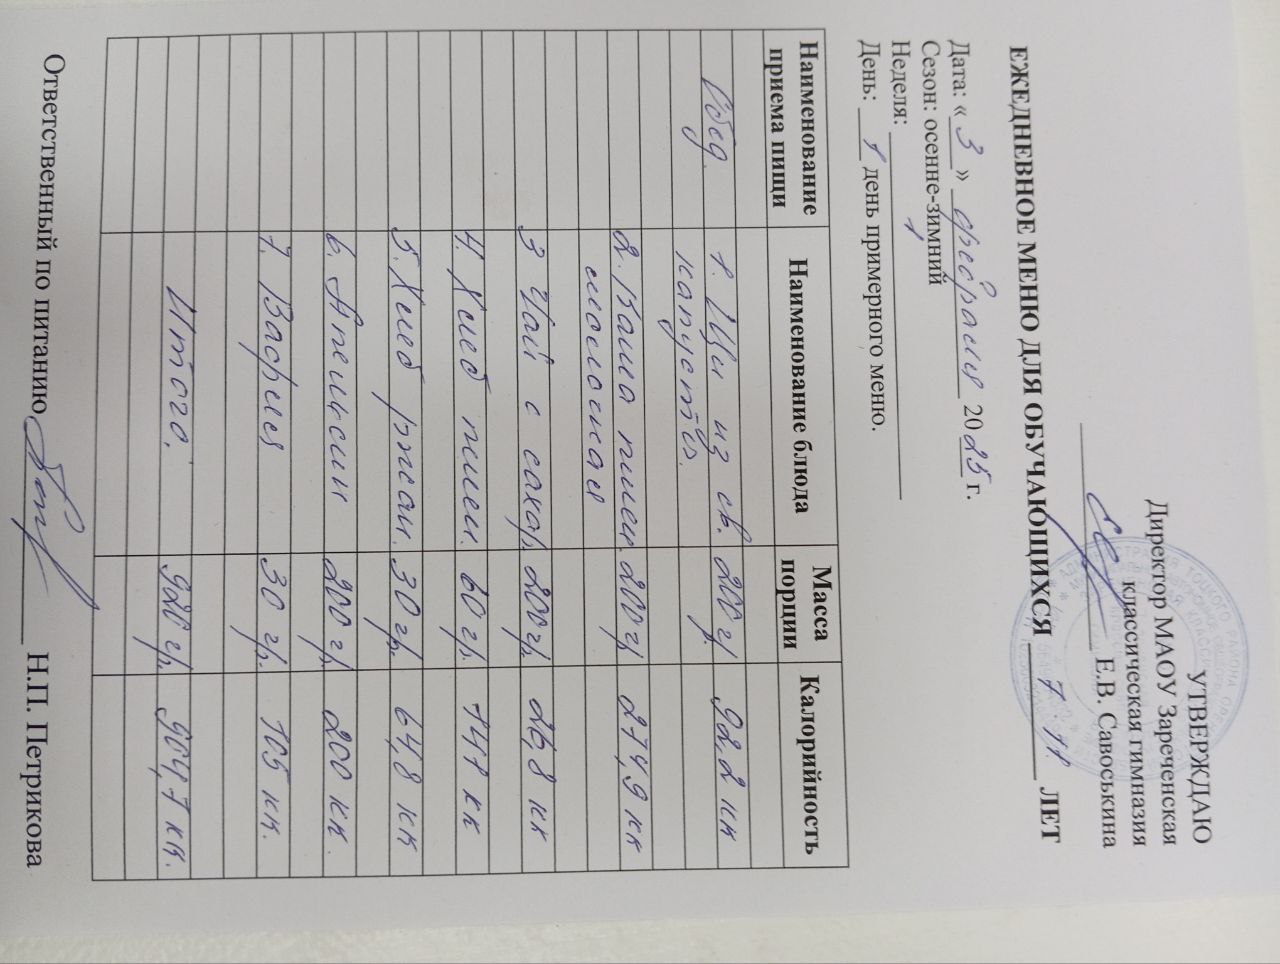 УТВЕРЖДАЮ
Директор МАОУ Зареченская
классическая гимназия
Е.В. Савоськина
ЕЖЕДНЕВНОЕ МЕНЮ ДЛЯ ОБУЧАЮЩИХСЯ 7-11 ЛЕТ
Дата: « 3 » февраля 2025 г.
Сезон: осенне-зимний
Неделя: 1
День: 1 день примерного меню.
Наименование приема пищи Наименование блюда Масса порции Калорийность
Обед. 1. Щи из св. 200 г. 92,2 кк
капусты.
2. Каша пшен. 200 г. 274,9 кк
молочная
3 Чай с сахар. 200 гр. 26,8 кк
4. Хлеб пшен. 60 гр. 141 кк
5. Хлеб ржан. 30 гр. 64,8 кк
6. Апельсин 200 гр. 200 кк.
7. Вафля 30 гр. 105 кк.
Итого. 920 гр. 904,7 кк.
Ответственный по питанию Н.П. Петрикова